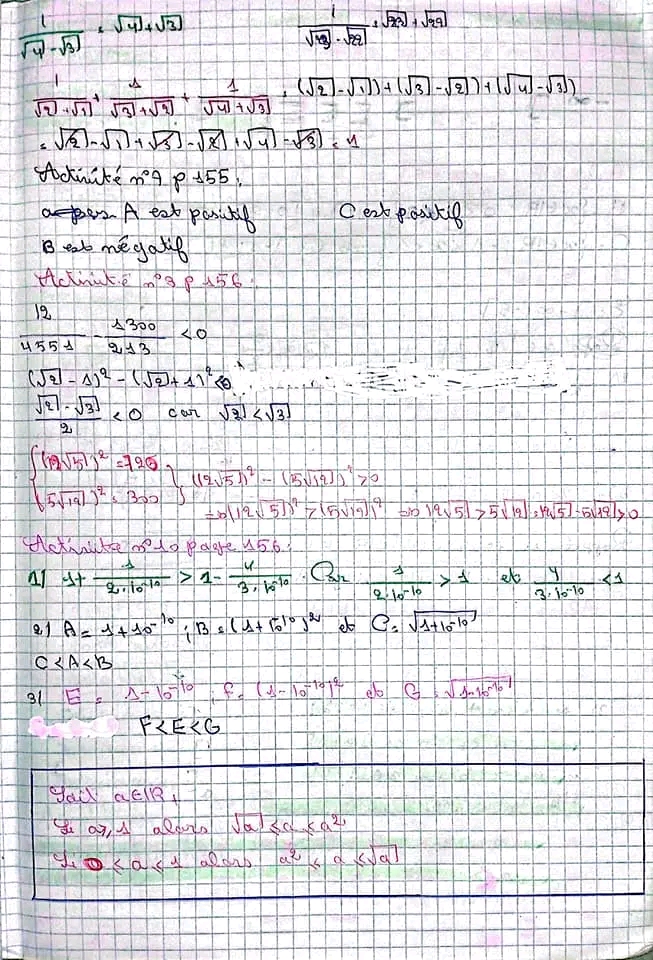 1/(√4 - √3) = √4 + √3    1/(√23 - √22) = √23 + √22
1/(√2 + √1) + 1/(√3 + √2) + 1/(√4 + √3) = (√2 - √1) + (√3 - √2) + (√4 - √3)
= √2 - √1 + √3 - √2 + √4 - √3 = 1
Activité n°9 p 155:
A est positif    C est positif
B est négatif
Activité n°3 p 156:
12/4551 - 1300/213 < 0
(√2 - 1)² - (√2 + 1)² < 0
(√2 - √3)/2 < 0 car √2 < √3
{(12√5)² = 720
(5√12)² = 300} (12√5)² - (5√12)² > 0
⇒ (12√5)² > (5√12)² ⇒ 12√5 > 5√12 = 12√5 - 5√12 > 0
Activité n°10 page 156:
1) 1 + 1/(2.10⁻¹⁰) > 1 - 4/(3.10⁻¹⁰). Car 1/(2.10⁻¹⁰) > 1 et 4/(3.10⁻¹⁰) < 1
2) A = 1 + 10⁻¹⁰ ; B = (1 + 10⁻¹⁰)² et C = √(1 + 10⁻¹⁰)
C < A < B
3) E = 1 - 10⁻¹⁰, F = (1 - 10⁻¹⁰)² et G = √(1 - 10⁻¹⁰)
F < E < G
Soit a ∈ IR₊
Si a ⩾ 1 alors √a ⩽ a ⩽ a²
Si 0 ⩽ a ⩽ 1 alors a² ⩽ a ⩽ √a